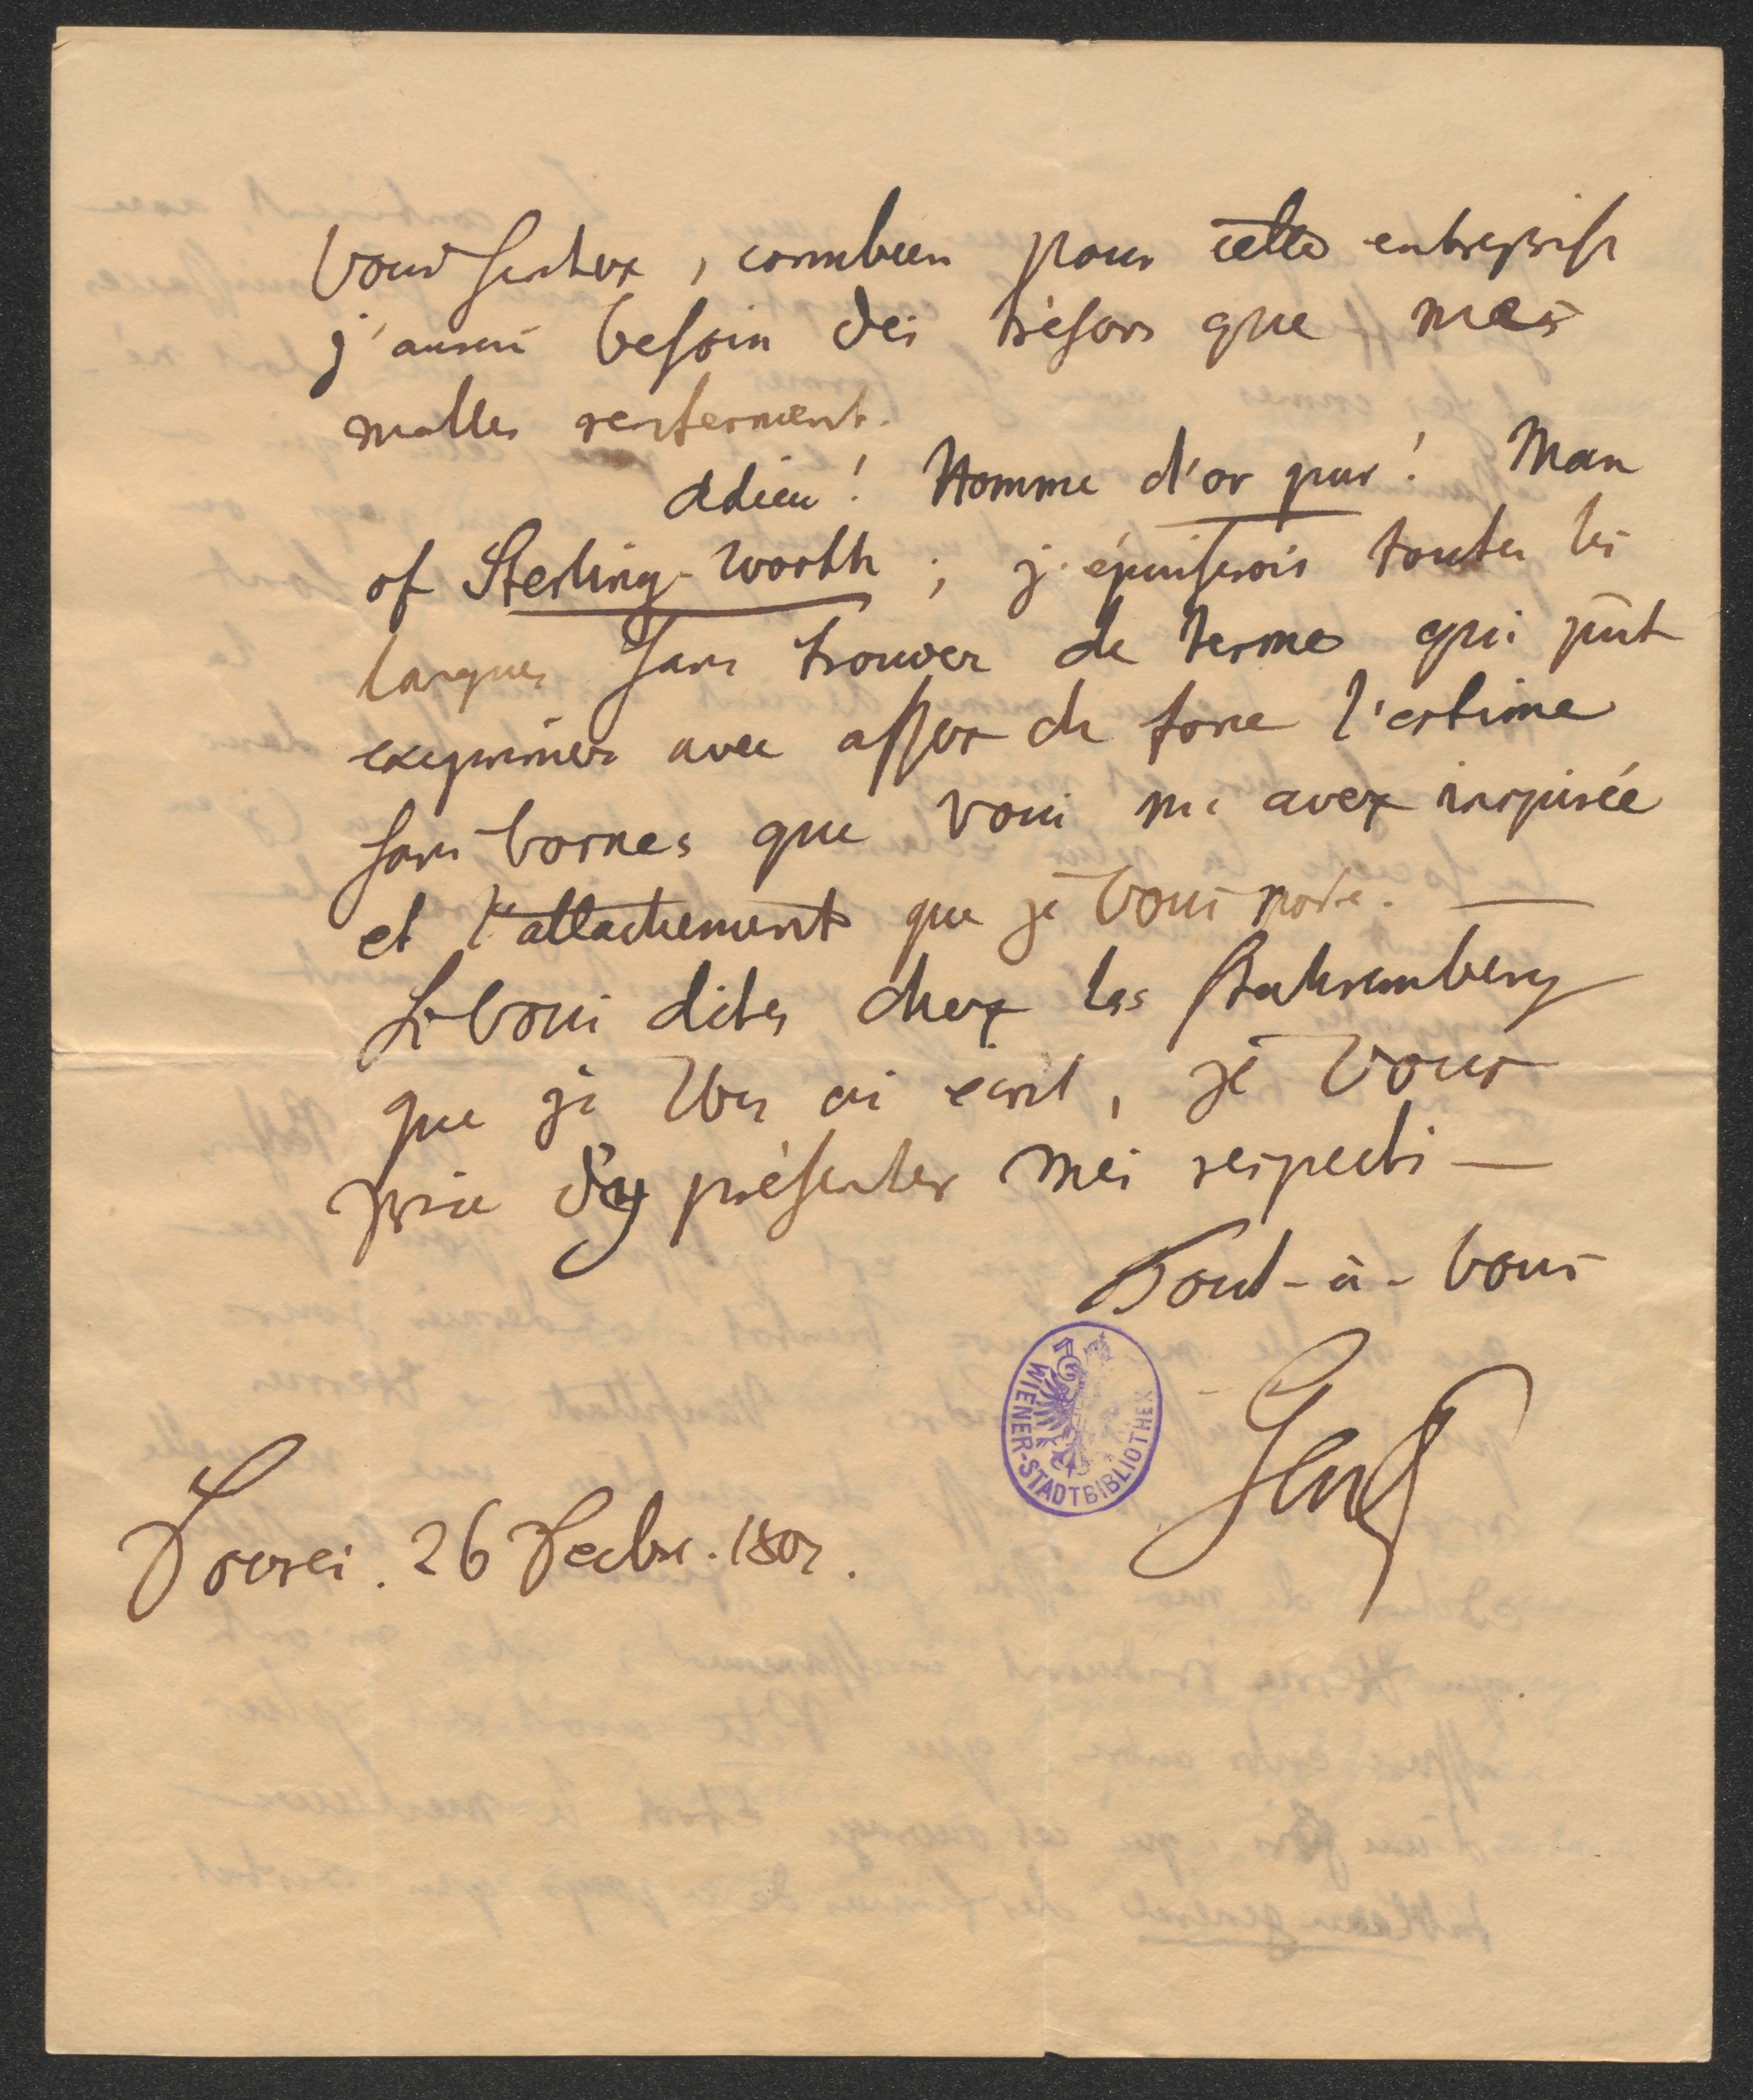 Vous sentez, combien pour cette entreprise
j'aurai besoin des trésors que mes
malles renferment.
Adieu! Homme d'or pur! Man
of Sterling-worth; j'épuiserois toutes les
langues sans trouver de terme qui pût
exprimer avec assez de force l'estime
sans bornes que vous m'avez inspirée
et l'attachement que je vous porte. —
Si vous dites chez les
que je Vous ai écrit, je vous
prie d'y présenter mes respects —
Tout-à-vous
Gentz
26 Decbre. 180
WIENER-STADTBIBLIOTHEK